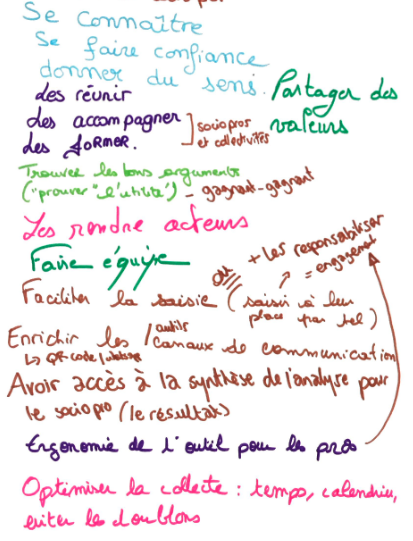 Se connaître
Se faire confiance
donner du sens. Partager des valeurs
les réunir
les accompagner ] sociopros et collectivités
les former.
Trouver les bons arguments
("prouver" l'utilité) - gagnant-gagnant
Les rendre acteurs
Faire équipe
ou + les responsabiliser = engagement
Faciliter la saisie (saisir à leur place par tel)
Enrichir les outils / canaux de communication
↳ QR code
Avoir accès à la synthèse de l'analyse pour
le sociopro (le résultat)
Ergonomie de l'outil pour les pros
Optimiser la collecte : temps, calendrier,
éviter les doublons